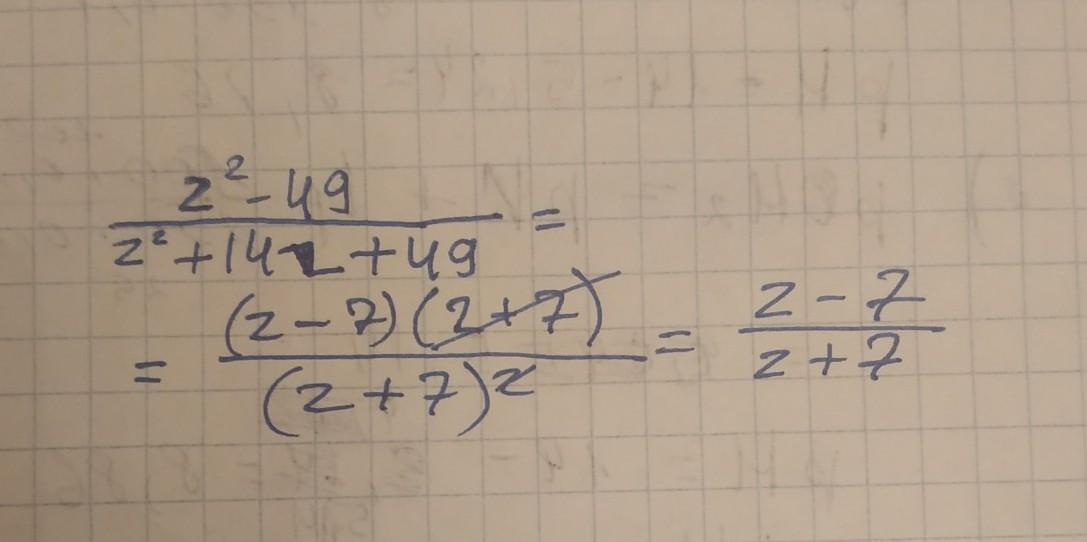 z² - 49
z² + 14z + 49 =
= (z - 7)(z + 7) / (z + 7)² = z - 7 / z + 7